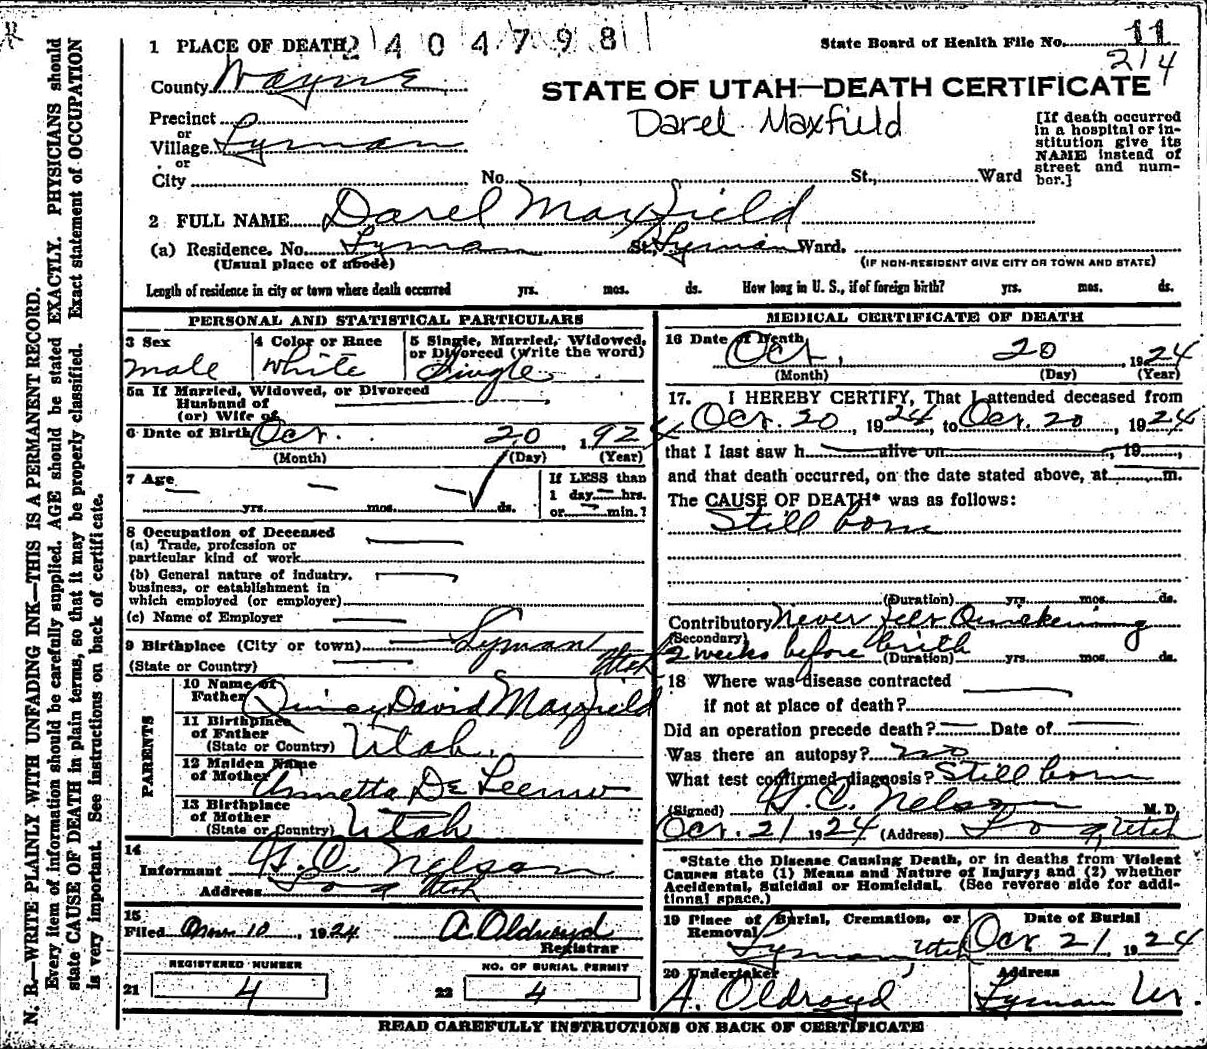 1 PLACE OF DEATH 2404798
State Board of Health File No. 11
214
County Wayne
STATE OF UTAH—DEATH CERTIFICATE
Darel Maxfield
Precinct
or
Village Lyman
or
City No. St., Ward
[If death occurred
in a hospital or in-
stitution give its
NAME instead of
street and num-
ber.]
2 FULL NAME Darel Maxfield
(a) Residence. No. Lyman St. Lyman Ward.
(Usual place of abode) (IF NON-RESIDENT GIVE CITY OR TOWN AND STATE)
Length of residence in city or town where death occurred yrs. mos. ds. How long in U. S., if of foreign birth? yrs. mos. ds.
PERSONAL AND STATISTICAL PARTICULARS
3 Sex
male
4 Color or Race
White
5 Single, Married, Widowed,
or Divorced (write the word)
Single
5a If Married, Widowed, or Divorced
Husband of
(or) Wife of
6 Date of Birth Oct. 20 1924
(Month) (Day) (Year)
7 Age
yrs. mos. ds.
If LESS than
1 day hrs.
or min.?
8 Occupation of Deceased
(a) Trade, profession or
particular kind of work
(b) General nature of industry,
business, or establishment in
which employed (or employer)
(c) Name of Employer
9 Birthplace (City or town) Lyman
(State or Country) Utah
PARENTS
10 Name of
Father Quincy David Maxfield
11 Birthplace
of Father
(State or Country) Utah.
12 Maiden Name
of Mother Annetta De Leeuw
13 Birthplace
of Mother
(State or Country) Utah
14
Informant H. C. Nelson
Address Loa Utah
15
Filed Nov 10, 1924 A Oldroyd
Registrar
REGISTERED NUMBER
21 4
NO. OF BURIAL PERMIT
22 4
MEDICAL CERTIFICATE OF DEATH
16 Date of Death
Oct. 20 1924
(Month) (Day) (Year)
17. I HEREBY CERTIFY, That I attended deceased from
Oct. 20, 1924, to Oct. 20, 1924
that I last saw h alive on , 19
and that death occurred, on the date stated above, at m.
The CAUSE OF DEATH* was as follows:
Still born
(Duration) yrs. mos. ds.
Contributory Never felt Quickening
(Secondary)
2 weeks before birth (Duration) yrs. mos. ds.
18 Where was disease contracted
if not at place of death?
Did an operation precede death? Date of
Was there an autopsy? no
What test confirmed diagnosis? Still born
(Signed) H. C. Nelson M. D.
Oct. 21 1924 (Address) Loa, Utah
*State the Disease Causing Death, or in deaths from Violent
Causes state (1) Means and Nature of Injury; and (2) whether
Accidental, Suicidal or Homicidal. (See reverse side for addi-
tional space.)
19 Place of Burial, Cremation, or
Removal
Lyman, Utah
Date of Burial
Oct 21, 1924
20 Undertaker
A. Oldroyd
Address
Lyman Ut.
READ CAREFULLY INSTRUCTIONS ON BACK OF CERTIFICATE
N. B.—WRITE PLAINLY WITH UNFADING INK—THIS IS A PERMANENT RECORD.
Every item of information should be carefully supplied. AGE should be stated EXACTLY. PHYSICIANS should
state CAUSE OF DEATH in plain terms, so that it may be properly classified. Exact statement of OCCUPATION
is very important. See instructions on back of certificate.